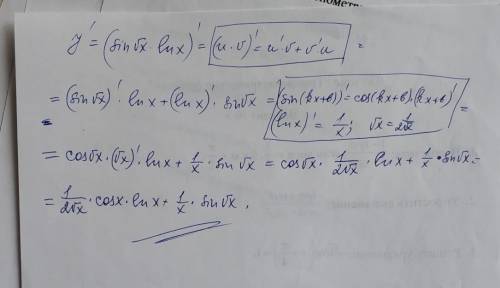 y' = (sin√x · ln x)' = (u·v)' = u'·v + v'u =
= (sin√x)' · ln x + (ln x)' · sin√x = (sin(kx+b))' = cos(kx+b)·(kx+b)'
(ln x)' = 1/x; √x = 1/2√x =
= cos√x · (√x)' · ln x + 1/x · sin√x = cos√x · 1/2√x · ln x + 1/x · sin√x =
= 1/2√x · cos x · ln x + 1/x · sin√x.